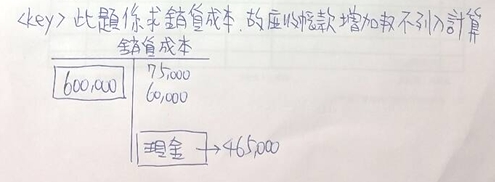 <key> 此題係求銷貨成本,故應收帳款增加數不列入計算
銷貨成本
600,000
75,000
60,000
現金 → 465,000